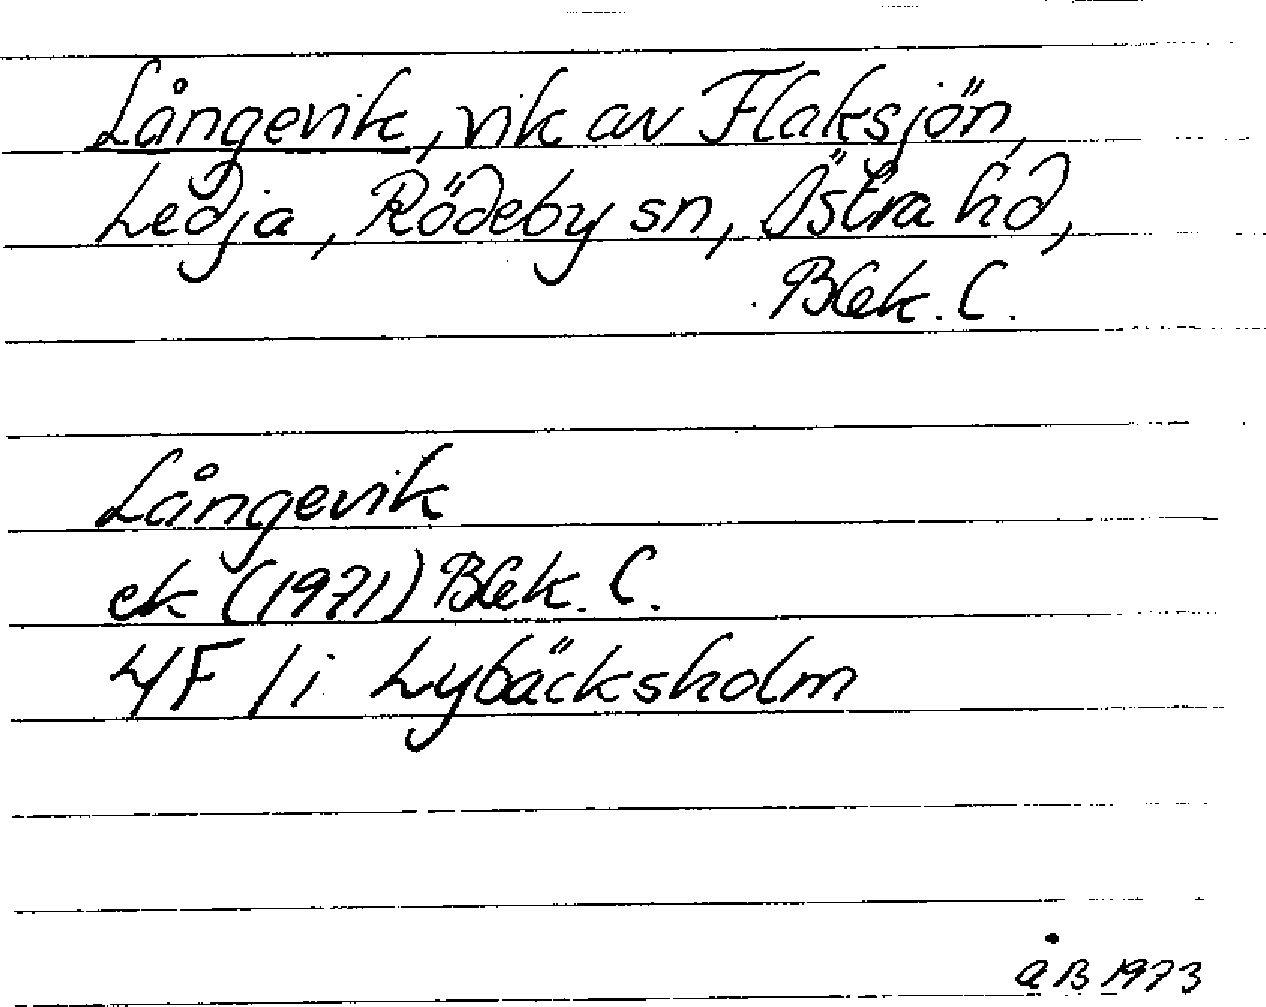 Långevik, vik av Flaksjön,
Ledja, Rödeby sn, Östra hd,
Blek. l.
Långevik
ek (1971) Blek. l.
4F 1i Lybäcksholm
åB 1973